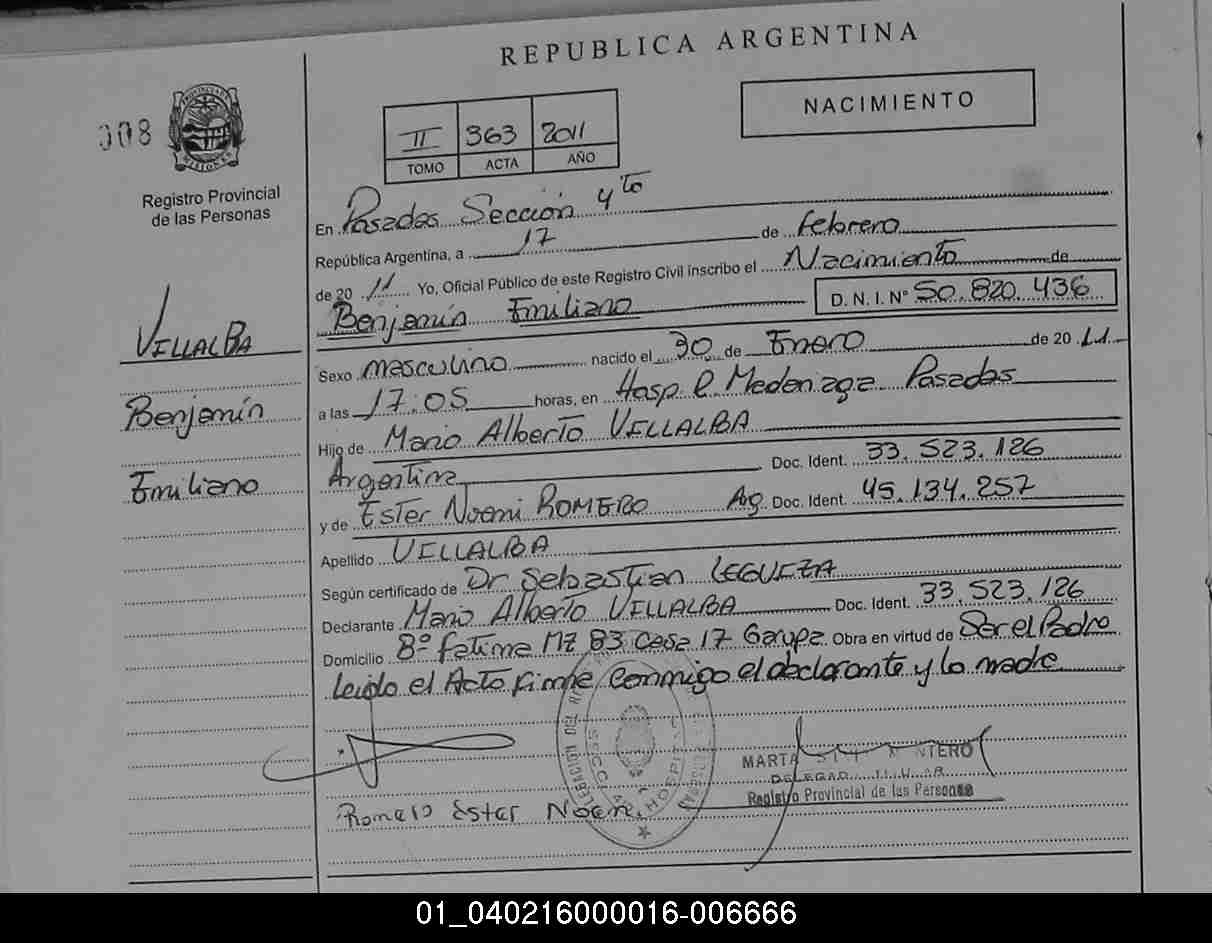 REPUBLICA ARGENTINA
NACIMIENTO
008
PROVINCIA DE MISIONES
Registro Provincial
de las Personas
II 363 2011
TOMO ACTA AÑO
En Posadas Sección 4to
República Argentina, a 17 de febrero
de 2011 Yo, Oficial Público de este Registro Civil inscribo el Nacimiento de
Benjamín Emiliano D. N. I. Nº 50.820.436
VILLALBA
Benjamín
Emiliano
Sexo masculino nacido el 30 de Enero de 2011
a las 17:05 horas, en Hosp R. Madariaga Posadas
Hijo de Mario Alberto VILLALBA
Argentina Doc. Ident. 33.523.126
y de Ester Noemi ROMERO Arg Doc. Ident. 45.134.257
Apellido VILLALBA
Según certificado de Dr Sebastian LEGUIZA
Declarante Mario Alberto VILLALBA Doc. Ident. 33.523.126
Domicilio Bº Fatima MZ 83 Casa 17 Garupa Obra en virtud de Ser el Padre
Leido el Acto firma conmigo el declarante y la madre
MARTA
Registro Provincial de las Personas
Romero Ester Noemi
01_040216000016-006666